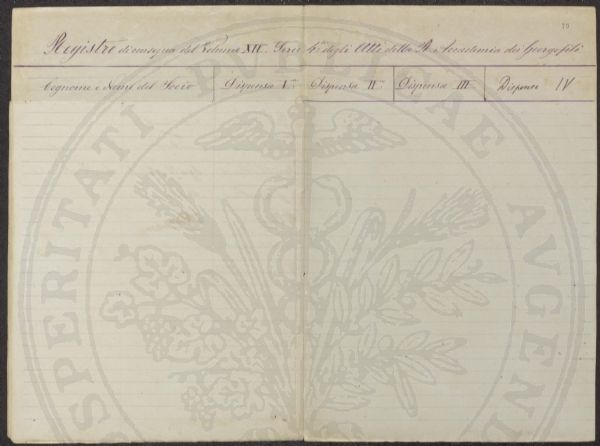 70
Registro di consegna del Volume XII. Serie 4ª degli Atti della R. Accademia dei Georgofili
Cognome e Nome del Socio Dispensa Iª Dispensa IIª Dispensa III Dispensa IV
PROSPERITATI PUBLICAE AUGENDAE